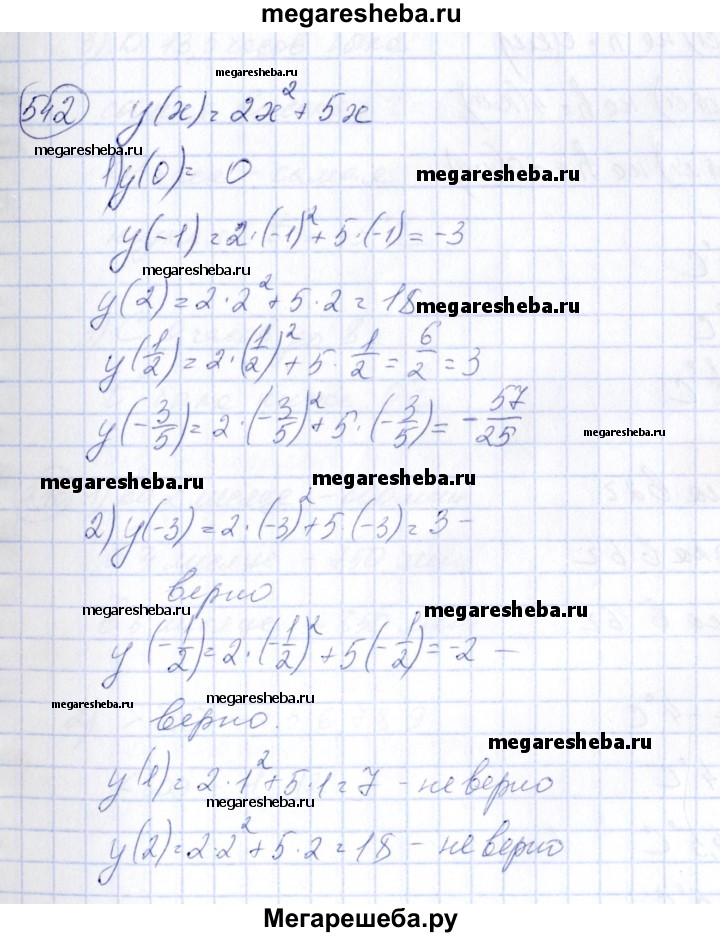 megaresheba.ru
megaresheba.ru
542 y(x) = 2x² + 5x
megaresheba.ru
1) y(0) = 0
megaresheba.ru
y(-1) = 2·(-1)² + 5·(-1) = -3
megaresheba.ru
y(2) = 2·2² + 5·2 = 18
megaresheba.ru
y(1/2) = 2·(1/2)² + 5·1/2 = 6/2 = 3
y(-3/5) = 2·(-3/5)² + 5·(-3/5) = -57/25
megaresheba.ru
megaresheba.ru
megaresheba.ru
2) y(-3) = 2·(-3)² + 5·(-3) = 3 -
верно
megaresheba.ru
megaresheba.ru
y(-1/2) = 2·(-1/2)² + 5(-1/2) = -2 —
megaresheba.ru
megaresheba.ru
верно.
megaresheba.ru
y(1) = 2·1² + 5·1 = 7 - не верно
megaresheba.ru
y(2) = 2·2² + 5·2 = 18 - не верно
Мегарешеба.ру